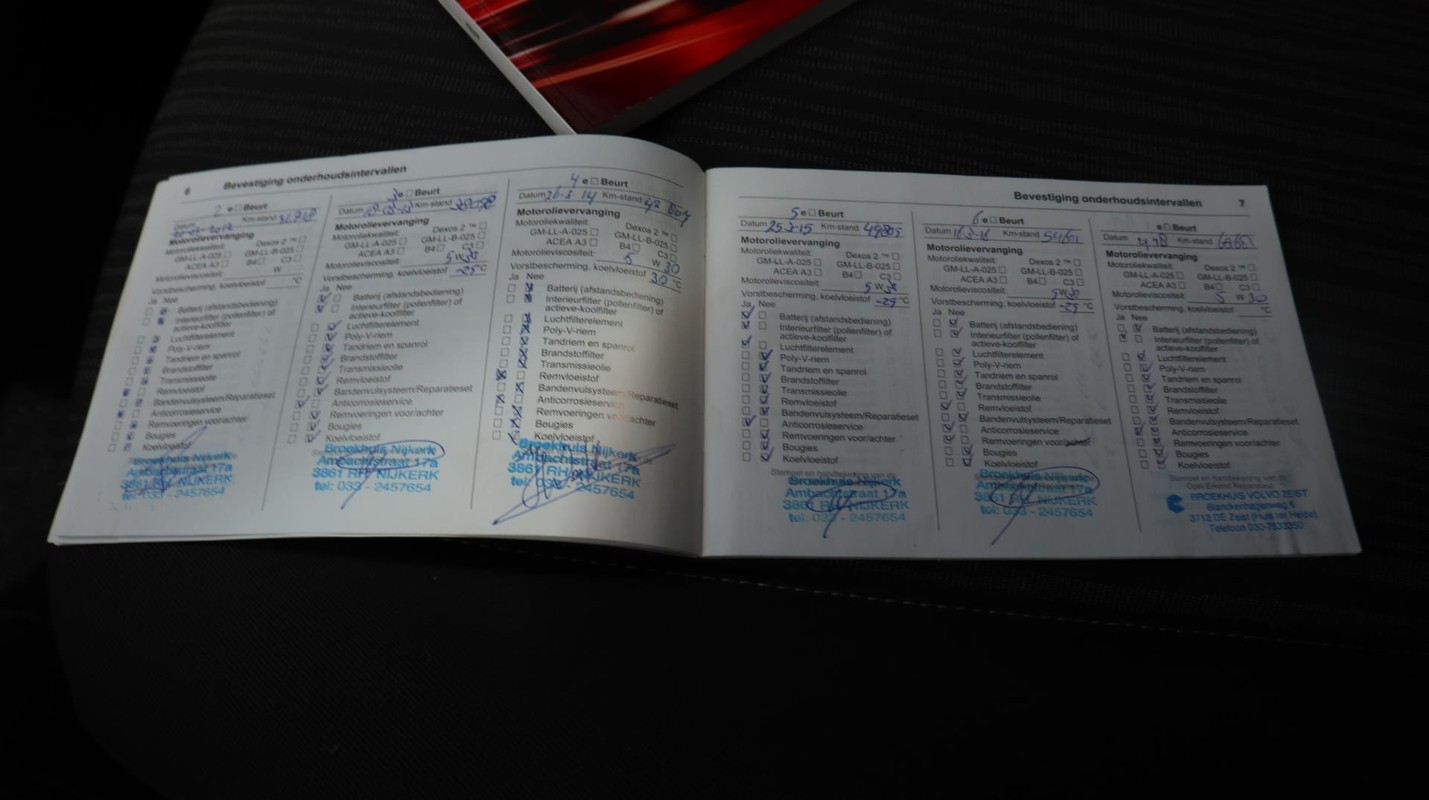 6 Bevestiging onderhoudsintervallen
2 e □ Beurt
Km-stand
Motorolievervanging
Motoroliekwaliteit: Dexos 2 ™ □
GM-LL-A-025 □ GM-LL-B-025 □
ACEA A3 □ B4 □ C3 □
Motorolieviscositeit: W
Vorstbescherming, koelvloeistof °C
Ja Nee
Batterij (afstandsbediening)
Interieurfilter (pollenfilter) of
actieve-koolfilter
Luchtfilterelement
Poly-V-riem
Tandriem en spanrol
Brandstoffilter
Transmissieolie
Remvloeistof
Bandenvulsysteem/Reparatieset
Anticorrosieservice
Remvoeringen voor/achter
Bougies
Koelvloeistof
Broekhuis Nijkerk
Ambachtstraat 17a
3861 RH NIJKERK
tel: 033 - 2457654
3 e □ Beurt
Datum Km-stand
Motorolievervanging
Motoroliekwaliteit: Dexos 2 ™ □
GM-LL-A-025 □ GM-LL-B-025 □
ACEA A3 □ B4 □ C3 □
Motorolieviscositeit: 5 W 30
Vorstbescherming, koelvloeistof -25 °C
Ja Nee
Batterij (afstandsbediening)
Interieurfilter (pollenfilter) of
actieve-koolfilter
Luchtfilterelement
Poly-V-riem
Tandriem en spanrol
Brandstoffilter
Transmissieolie
Remvloeistof
Bandenvulsysteem/Reparatieset
Anticorrosieservice
Remvoeringen voor/achter
Bougies
Koelvloeistof
Broekhuis Nijkerk
Ambachtstraat 17a
3861 RH NIJKERK
tel: 033 - 2457654
4 e □ Beurt
Datum 26-3-14 Km-stand
Motorolievervanging
Motoroliekwaliteit: Dexos 2 ™ □
GM-LL-A-025 □ GM-LL-B-025 □
ACEA A3 □ B4 □ C3 □
Motorolieviscositeit: 5 W 30
Vorstbescherming, koelvloeistof 30 °C
Ja Nee
Batterij (afstandsbediening)
Interieurfilter (pollenfilter) of
actieve-koolfilter
Luchtfilterelement
Poly-V-riem
Tandriem en spanrol
Brandstoffilter
Transmissieolie
Remvloeistof
Bandenvulsysteem/Reparatieset
Anticorrosieservice
Remvoeringen voor/achter
Bougies
Koelvloeistof
Broekhuis Nijkerk
Ambachtstraat 17a
3861 RH NIJKERK
tel: 033 - 2457654
Bevestiging onderhoudsintervallen 7
5 e □ Beurt
Datum 25-3-15 Km-stand 49805
Motorolievervanging
Motoroliekwaliteit: Dexos 2 ™ □
GM-LL-A-025 □ GM-LL-B-025 □
ACEA A3 □ B4 □ C3 □
Motorolieviscositeit: 5 W 30
Vorstbescherming, koelvloeistof -25 °C
Ja Nee
Batterij (afstandsbediening)
Interieurfilter (pollenfilter) of
actieve-koolfilter
Luchtfilterelement
Poly-V-riem
Tandriem en spanrol
Brandstoffilter
Transmissieolie
Remvloeistof
Bandenvulsysteem/Reparatieset
Anticorrosieservice
Remvoeringen voor/achter
Bougies
Koelvloeistof
Stempel en handtekening van de
Broekhuis Nijkerk
Ambachtstraat 17a
3861 RH NIJKERK
tel: 033 - 2457654
6 e □ Beurt
Datum Km-stand
Motorolievervanging
Motoroliekwaliteit: Dexos 2 ™ □
GM-LL-A-025 □ GM-LL-B-025 □
ACEA A3 □ B4 □ C3 □
Motorolieviscositeit: 5W30
Vorstbescherming, koelvloeistof -25 °C
Ja Nee
Batterij (afstandsbediening)
Interieurfilter (pollenfilter) of
actieve-koolfilter
Luchtfilterelement
Poly-V-riem
Tandriem en spanrol
Brandstoffilter
Transmissieolie
Remvloeistof
Bandenvulsysteem/Reparatieset
Anticorrosieservice
Remvoeringen voor/achter
Bougies
Koelvloeistof
Broekhuis Nijkerk
Ambachtstraat 17a
3861 RH NIJKERK
tel: 033 - 2457654
e □ Beurt
Datum Km-stand
Motorolievervanging
Motoroliekwaliteit: Dexos 2 ™ □
GM-LL-A-025 □ GM-LL-B-025 □
ACEA A3 □ B4 □ C3 □
Motorolieviscositeit: 5 W 30
Vorstbescherming, koelvloeistof °C
Ja Nee
Batterij (afstandsbediening)
Interieurfilter (pollenfilter) of
actieve-koolfilter
Luchtfilterelement
Poly-V-riem
Tandriem en spanrol
Brandstoffilter
Transmissieolie
Remvloeistof
Bandenvulsysteem/Reparatieset
Anticorrosieservice
Remvoeringen voor/achter
Bougies
Koelvloeistof
Stempel en handtekening van de
Opel Erkend Reparateur
BROEKHUIS VOLVO ZEIST
Blanckenhagenweg 8
3712 DE Zeist (Huis ter Heide)
Telefoon 030-7533350